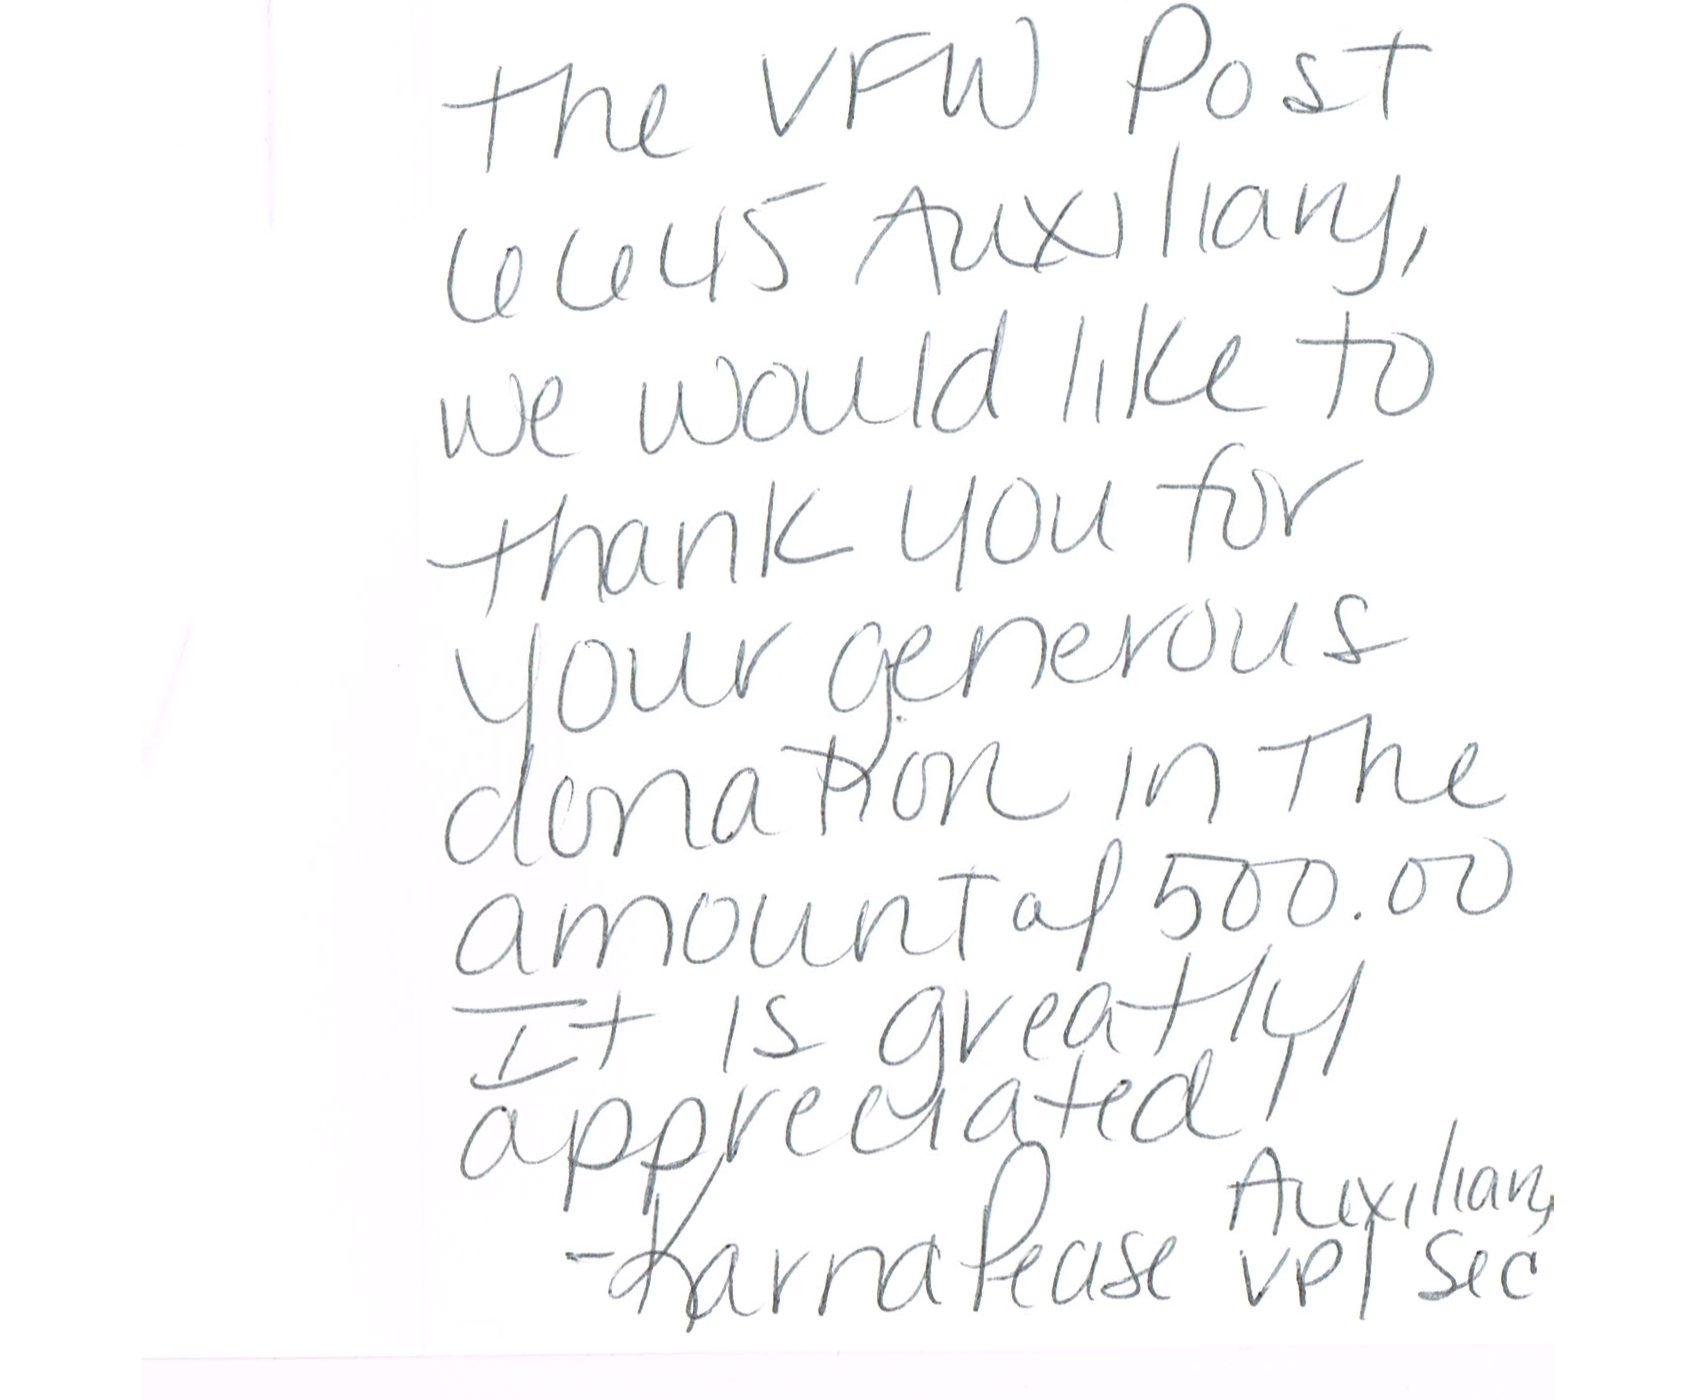 The VFW Post
6645 Auxiliary,
we would like to
thank you for
your generous
donation in The
amount of 500.00
It is greatly
appreciated!
-Karna Pease Auxiliary
VP/Sec